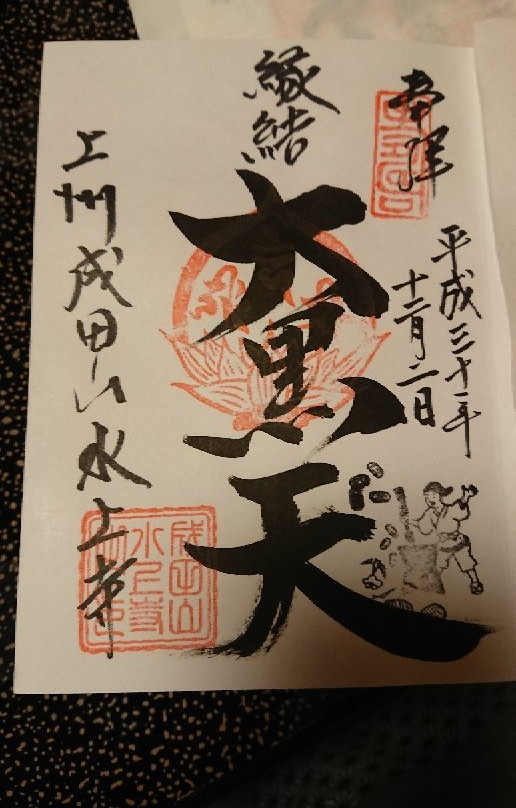 奉拝
平成三十年
十二月二日
縁結
大黒天
上州成田山水上寺
成田山
水上寺